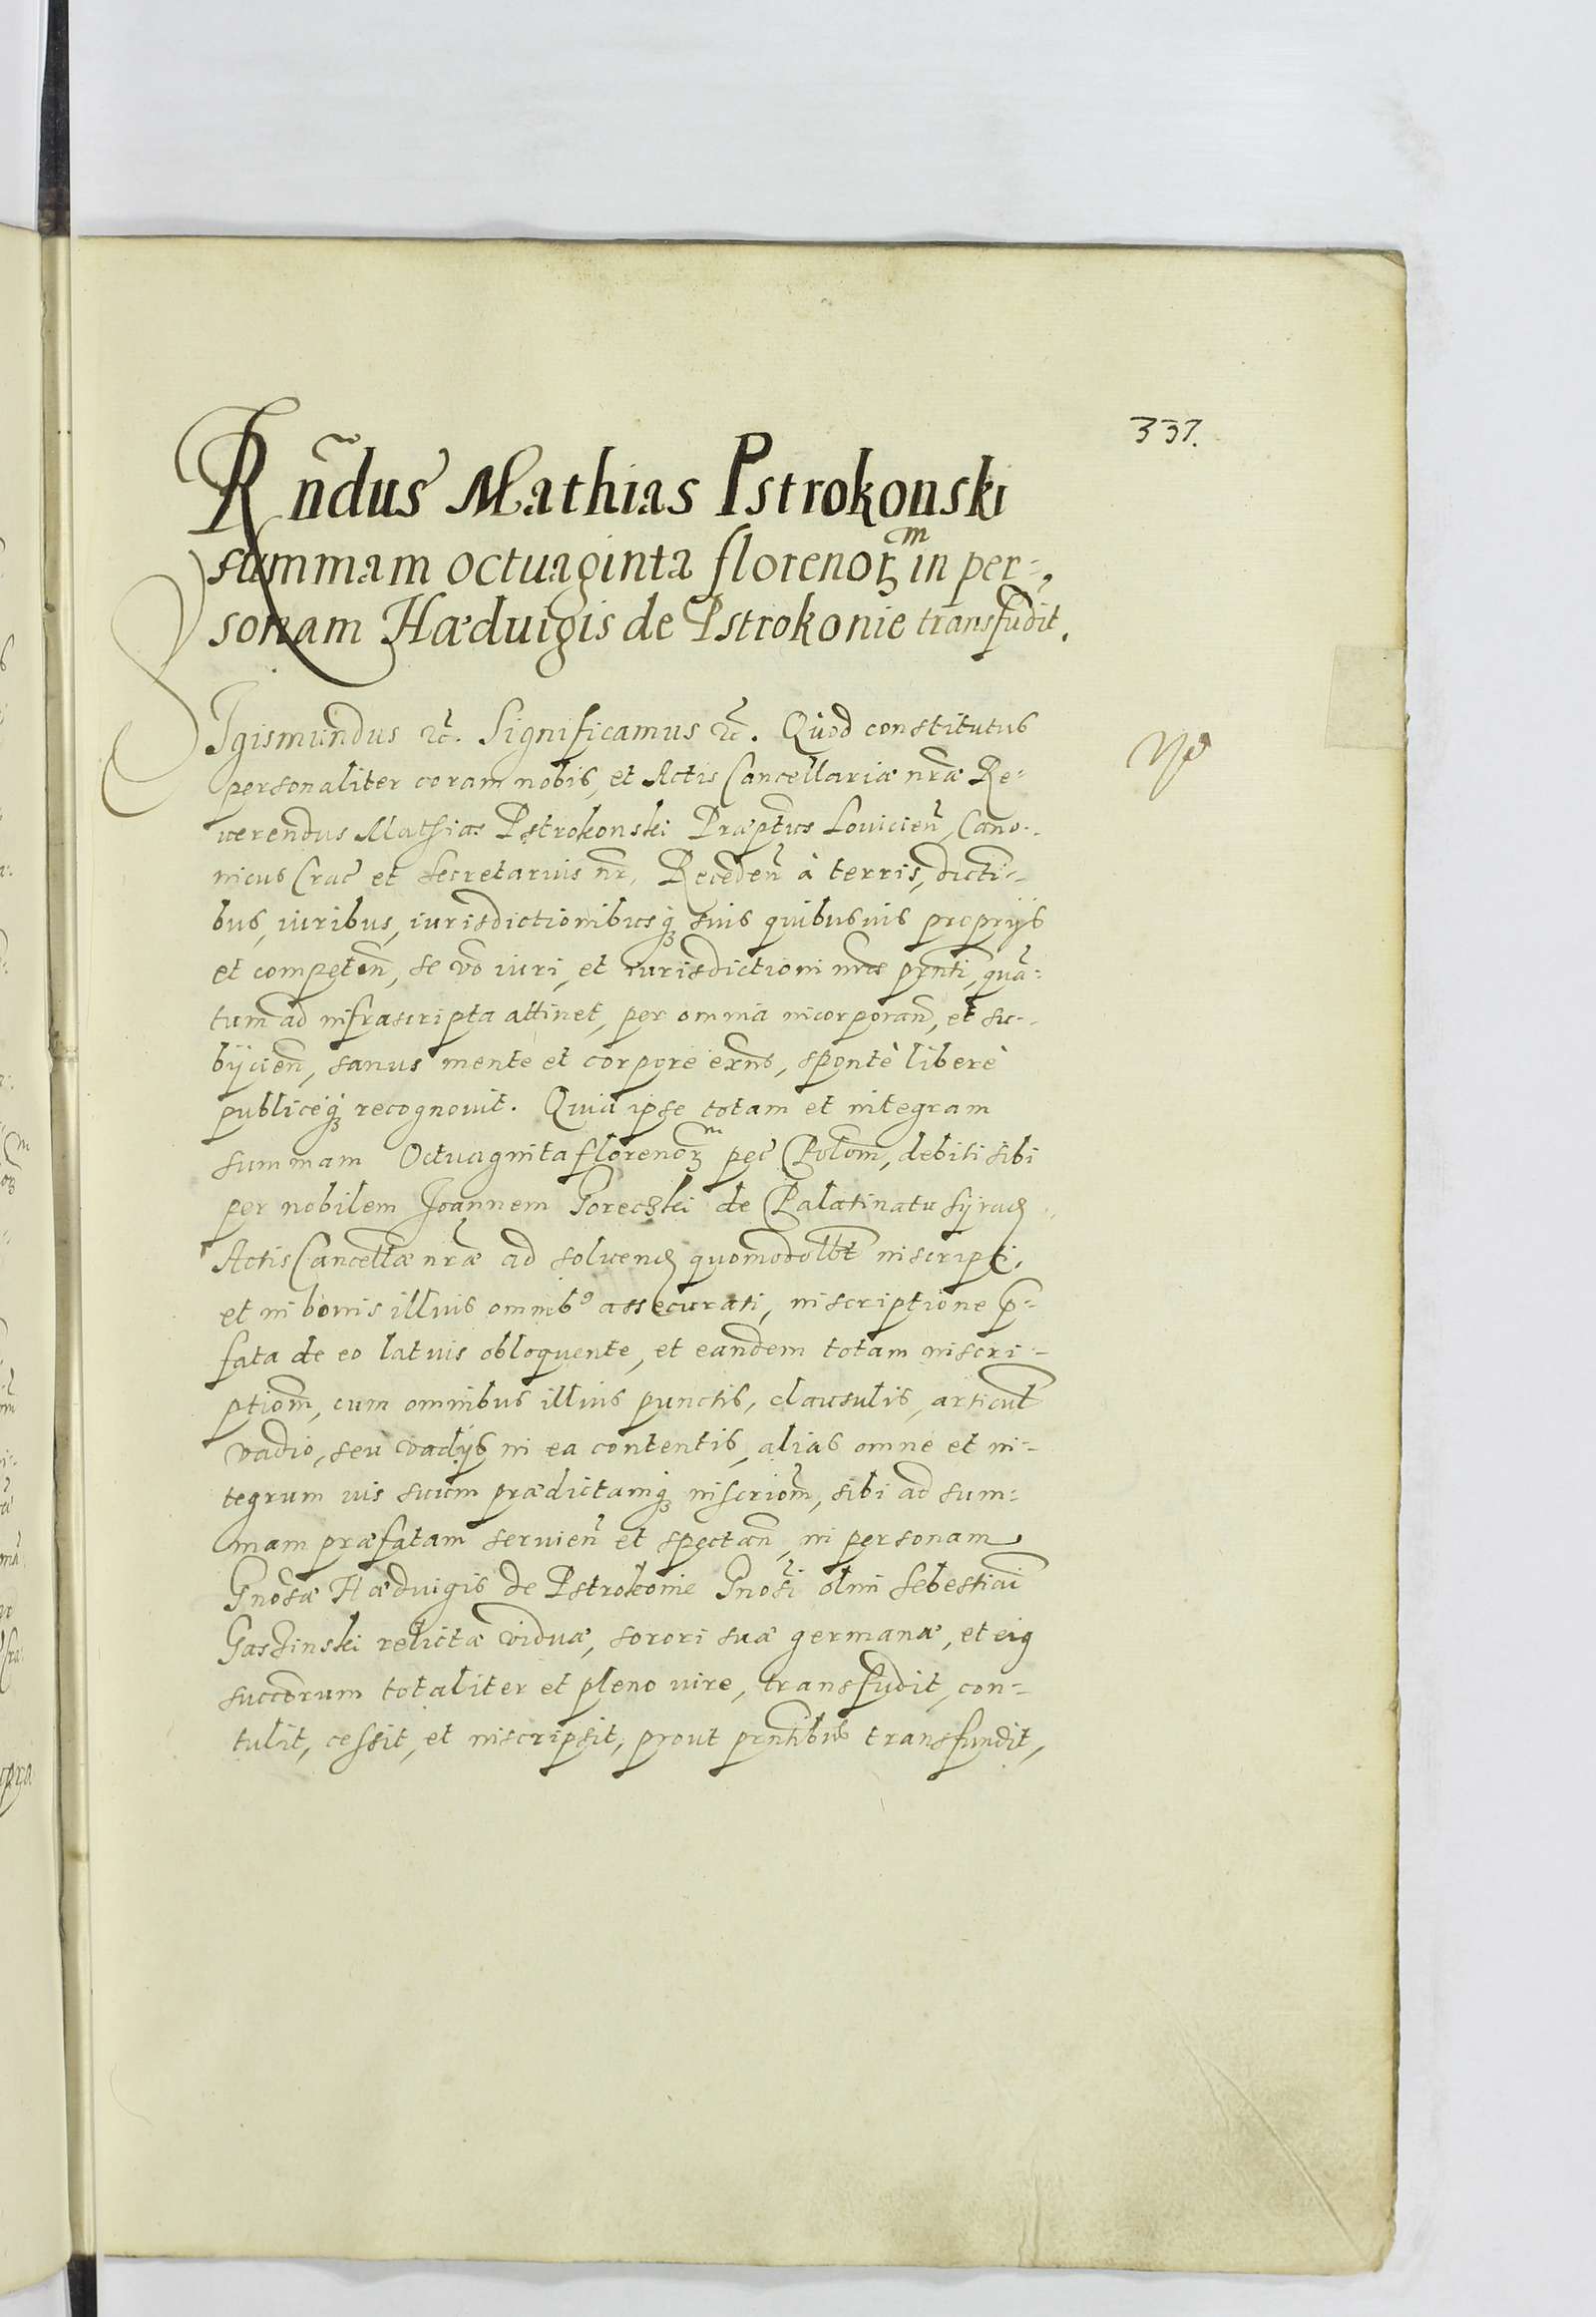 337.
Rñdus Mathias Pstrokonski
summam octuaginta florenoꝝᵐ in per-
sonam Hæduigis de Pstrokonie transfudit.
SIgismundus ꝛc̃. Significamus ꝛc̃. Quod constitutus
personaliter coram nobis, et Actis Cancellariæ nr̃æ Re-
uerendus Mathias Pstrokonski Præptus Louicien̄, Cano-
nicus Crac̄ et Secretarius nr̄, Receden̄ à terris, dicti-
bus, iuribus, iurisdictionibusqꝫ suis quibusuis proprijs
et competen̄, se vō iuri, et iurisdictioni nr̃æ pr̃nti, quā-
tum ad infrascripta attinet, per omnia incorporan̄, et su-
bijcien̄, sanus mente et corpore exn̄s, spontè liberè
publiceqꝫ recognouit. Quia ipse totam et integram
summam Octuaginta florenoꝝᵐ pec̄ Polom̄, debiti sibi
per nobilem Joannem Goreczki de Palatinatu Syrad̄
Actis Cancellæ nr̃æ ad soluend̄ quomodolbt̄ inscripti,
et in bonis illius omnibꝰ assecurati, inscriptione p̄-
fata de eo latius obloquente, et eandem totam inscri-
ptiom̄, cum omnibus illius punctis, clausulis, articul̄
vadio, seu vadijs in ea contentis, alias omne et in-
tegrum ius suum prædictamqꝫ inscriom̄, sibi ad sum-
mam præfatam seruien̄ et spectan̄, in personam
Gnōsæ Hæduigis de Pstrokonie Gnōsi olim Sebestiani
Gaszinski relictæ viduæ, sorori suæ germanæ, et eiꝰ
succorum totaliter et pleno iure, transfudit, con-
tulit, cessit, et inscripsit, prout pr̃ntibus transfundit,